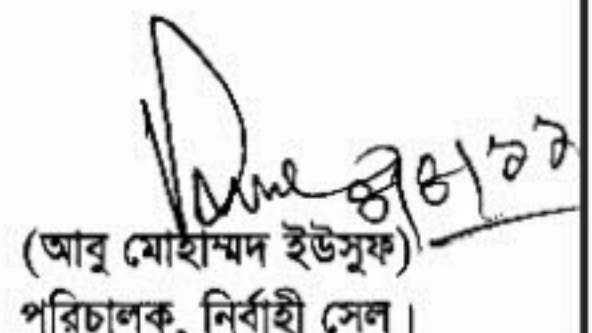 ৪/৪/১১
(আবু মোহাম্মদ ইউসুফ)
পরিচালক, নির্বাহী সেল।